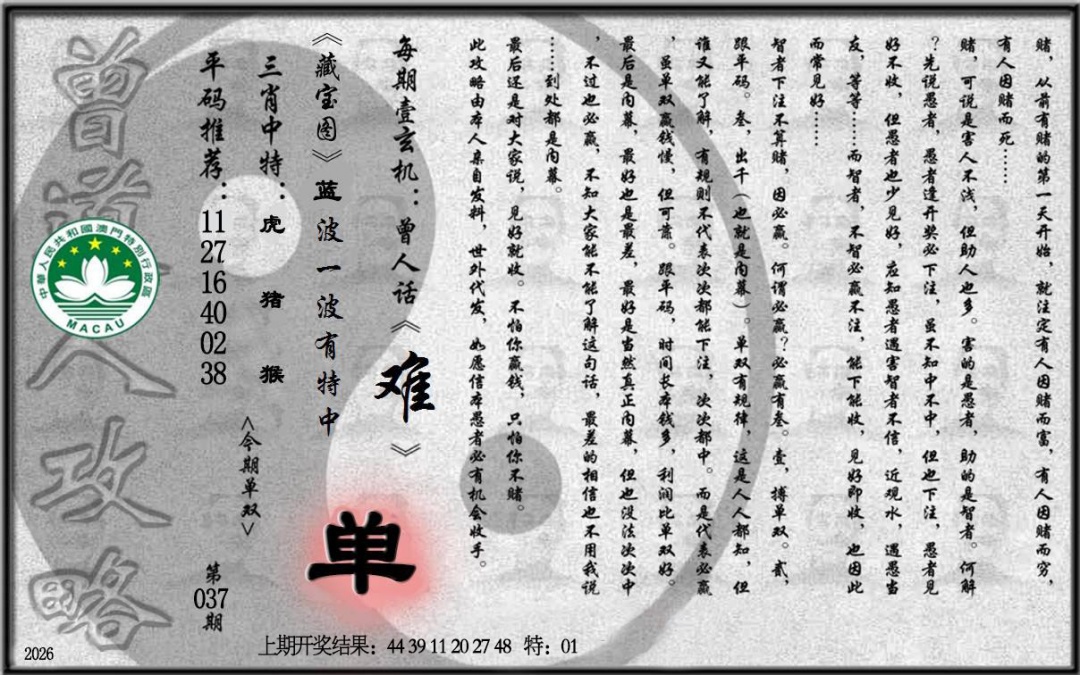 赌，从前有赌的第一天开始，就注定有人因赌而富，有人因赌而穷，
有人因赌而死……
赌，可说是害人不浅，但助人也多。害的是愚者，助的是智者。何解
？先说愚者，愚者逢开奖必下注，虽不知中不中，但也下注，愚者见
好不收，但愚者也少见好，应知愚者遇害智者不信，近观水，遇愚当
友，等等……而智者，不智必赢不注，能下能收，见好即收，也因此
而常见好……
智者下注不算赌，因必赢。何谓必赢？必赢有叁。壹，搏单双。贰，
跟单码。叁，出千（也就是内幕）。单双有规律，这是人人都知，但
谁又能了解，有规则不代表次次都能下注，次次都中。而是代表必赢
，虽单双赢钱慢，但可靠。跟单码，时间长本钱多，利润比单双好。
最后是内幕，最好也是最差，最好是当然真正内幕，但也没法次次中
，不过也必赢，不知大家能不能了解这句话，最差的相信也不用我说
……到处都是内幕。
最后还是对大家说，见好就收。不怕你赢钱，只怕你不赌。
此攻略由本人亲自发料，世外代发，如愿信本愚者必有机会收手。
每期壹玄机：曾人话《难》
《藏宝图》蓝波一波有特中
单
三肖中特：虎 猪 猴
<今期单双>
平码推荐：11 27 16 40 02 38
第037期
曾道人攻略
中華人民共和國澳門特別行政區
MACAU
2026
上期开奖结果：44 39 11 20 27 48 特：01